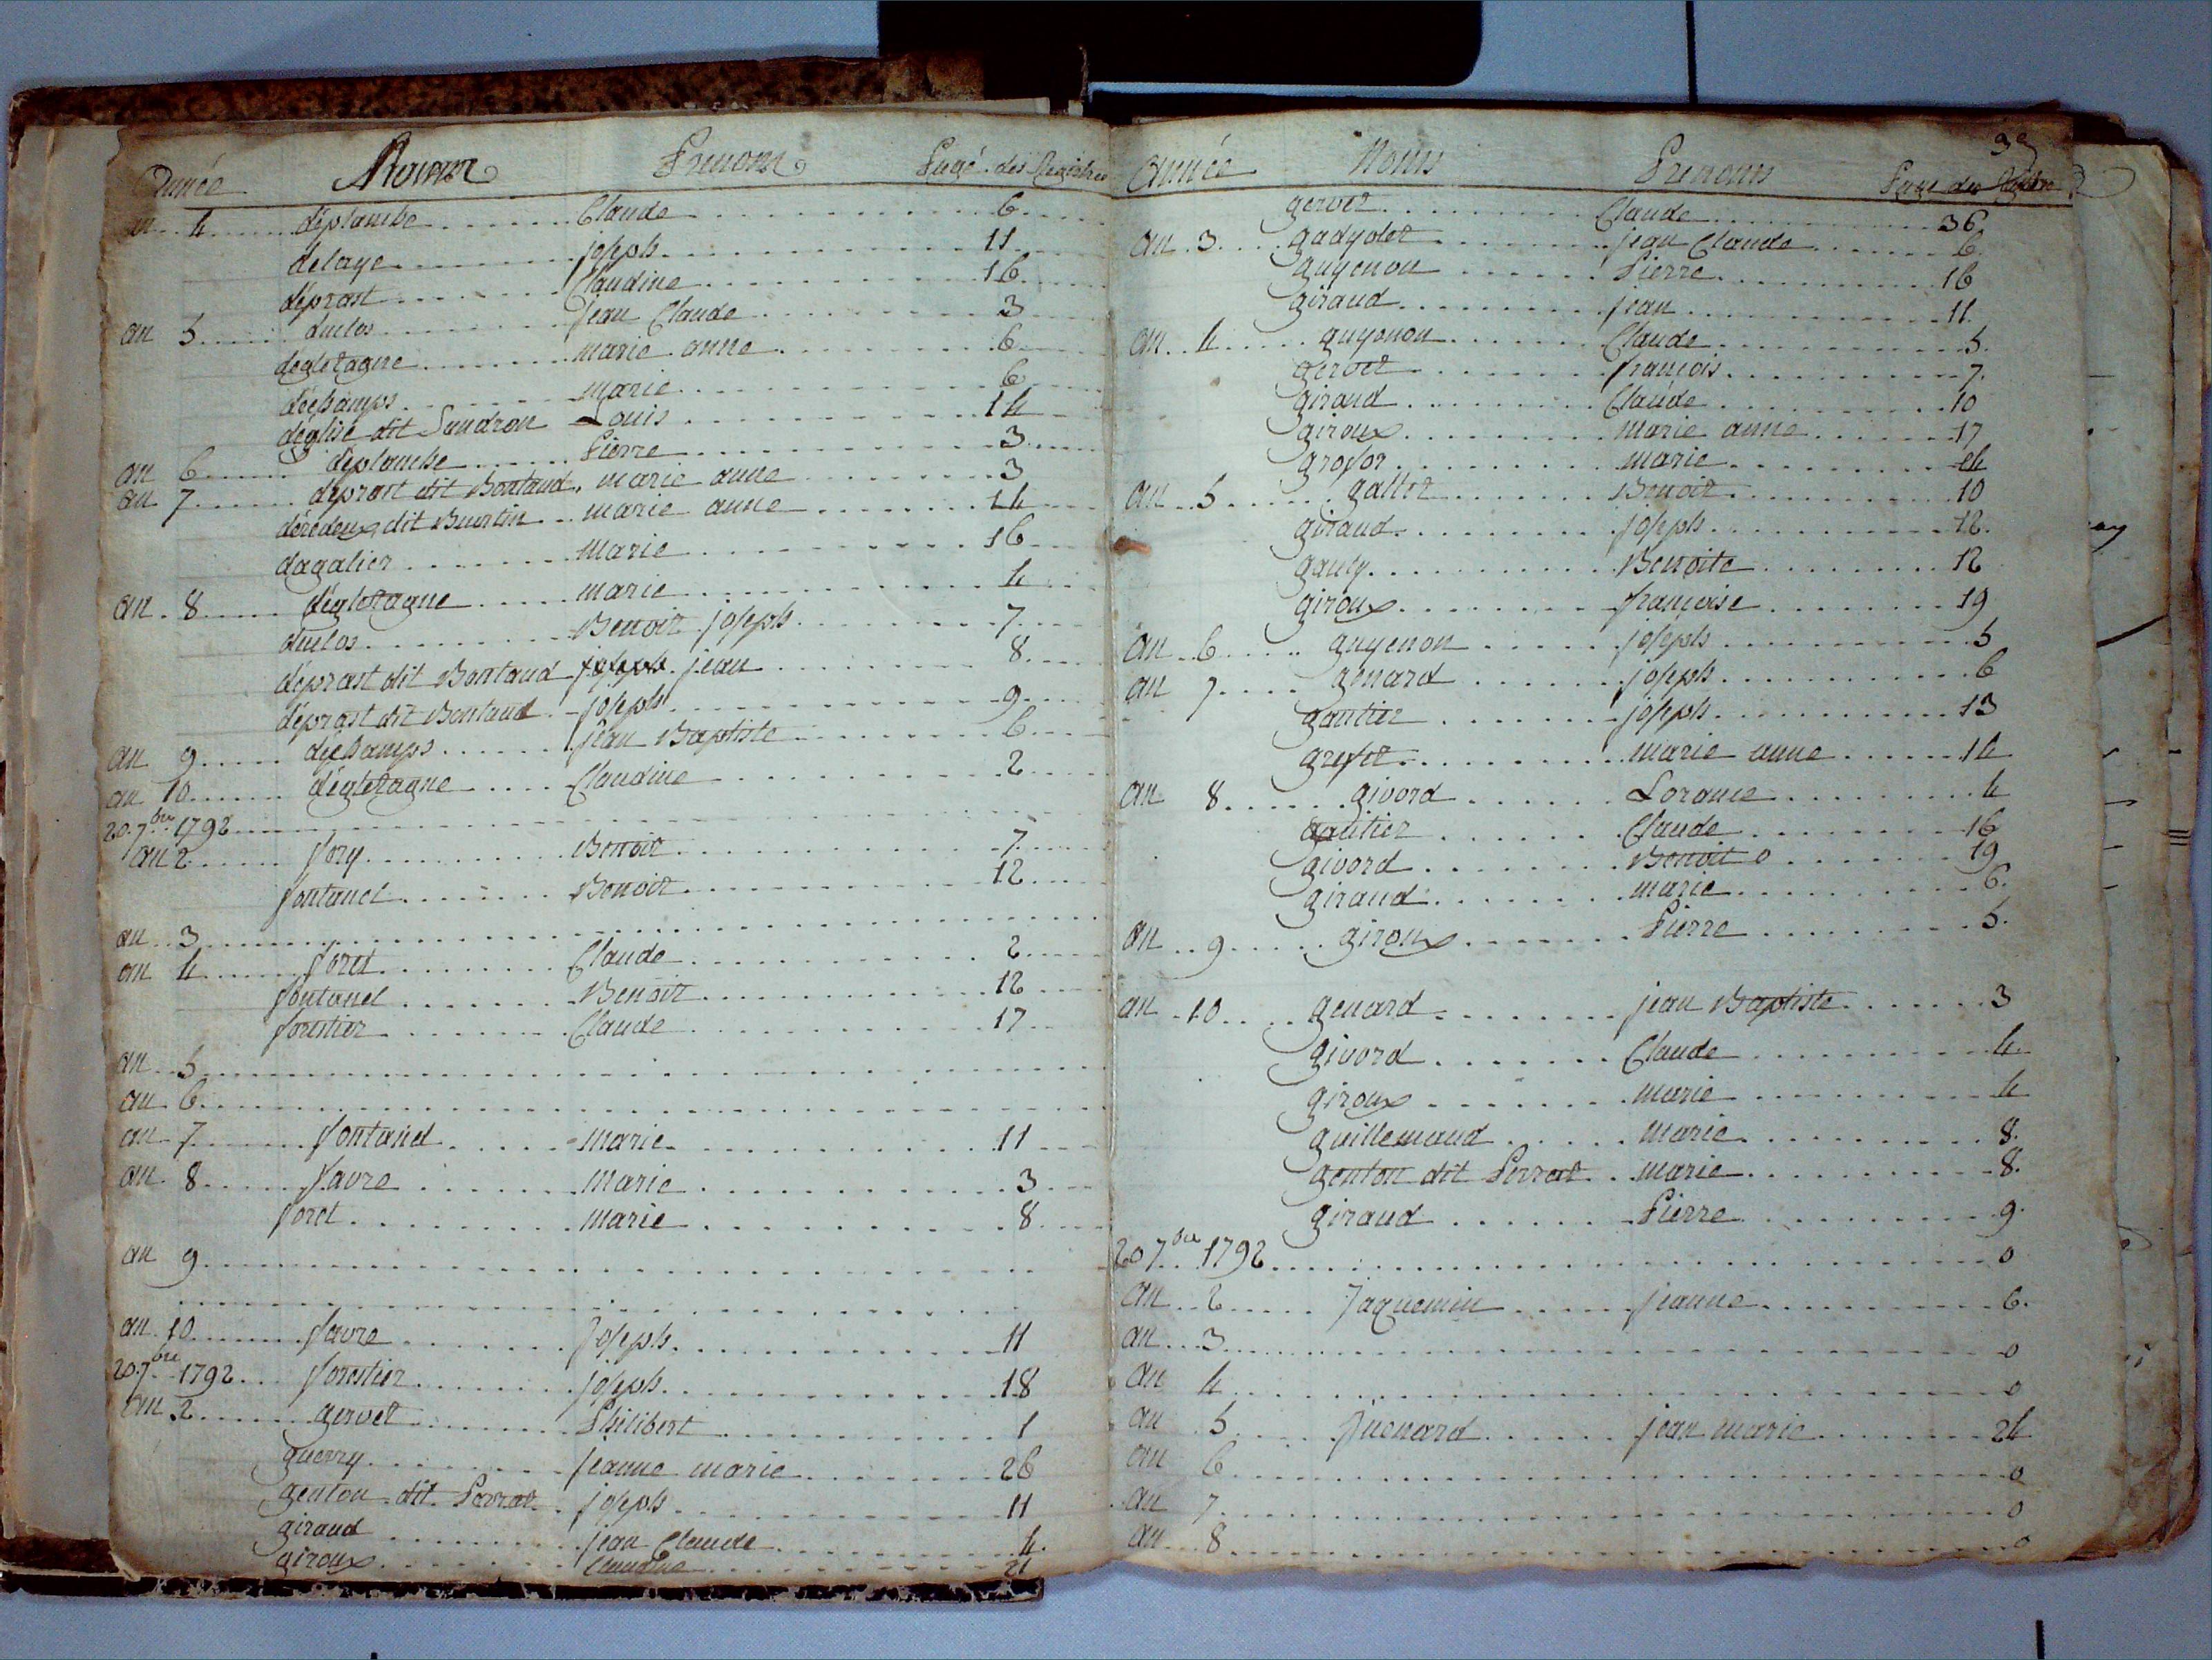 Année Noms Prenoms Page des Registres
an 4 déplanche Claude 6
delaye joseph 11
déprost Claudine 16
an 5 duclos jean Claude 3
degletagne marie anne 6
déchamps marie 6
déglise dit Sandron Louis 14
an 6 déplanche Pierre 3
an 7 déprost dit Bontaud marie anne 3
dit Buretin marie anne 14
dagalier marie 16
an 8 dégletagne marie 4
duclos Benoit joseph 7
déprost dit Bontaud joseph jean 8
déprost dit Bontaud joseph 9
an 9 déchamps jean Baptiste 6
an 10 dégletagne Claudine 2
20 7bre 1792
an 2 fory Benoit 7
fontanel Benoit 12
an 3
an 4 foret Claude 2
fontanel Benoit 12
forestier Claude 17
an 5
an 6
an 7 fontanel marie 11
an 8 favre marie 3
foret marie 8
an 9
an 10 favre joseph 11
20 7bre 1792 forestier joseph 18
an 2 gervet Philibert 1
guerry jeanne marie 26
genton dit Perrat joseph 11
giraud jean Claude 4
giroux Claudine 21
39
année Noms Prenoms Page des Registres
gervet Claude 36
an 3 gadyolet jean Claude 6
guyenon Pierre 16
giraud jean 11
an 4 guyonon Claude 5
gervet françois 7
giraud Claude 10
giroux marie anne 17
grosor marie
an 5 gallet Benoit 10
giraud joseph 12
gauly Benoite 12
giroux françoise 19
an 6 guyenon joseph 5
an 7 genard joseph 6
gautier joseph 13
greset marie anne 14
an 8 givord Lorance 4
gautier Claude 16
givord Benoit 19
giraud marie 6
an 9 giroux Pierre 5
an 10 genard jean Baptiste 3
givord Claude 4
giroux marie 4
guillemaud marie 8
genton dit Perrat marie 8
giraud Pierre 9
20 7bre 1792 0
an 2 Jaquemin jeanne 6
an 3 0
an 4 0
an 5 Juenard jean marie 24
an 6 0
an 7 0
an 8 0